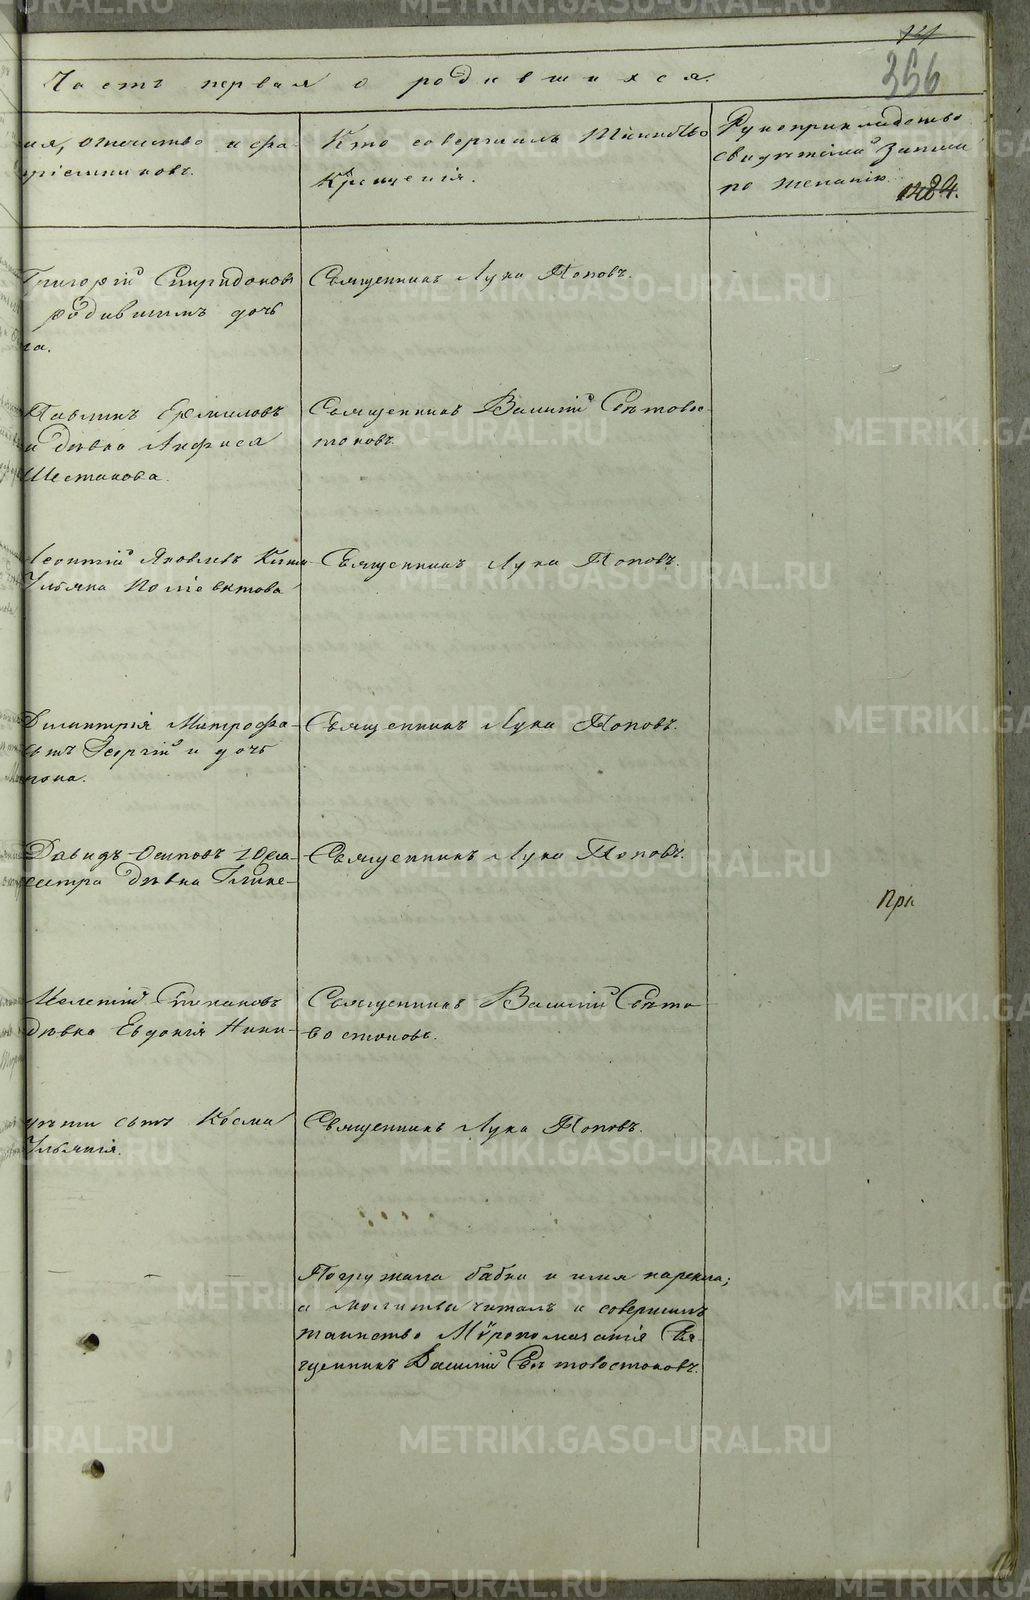 Часть первая о родившихся.
14
356
ия, отчество и фа-
ріемниковъ.
Кто совершалъ Таинство
Крещенія.
Рукоприкладство
свидѣтелей записи
по желанію.
Григорій Спиридоновъ
родившимъ дочь
га.
Священникъ Лука Поповъ.
Павлинъ Ермиловъ
и дѣвка Анфиса
Шестакова.
Священникъ Василій Свѣтовос-
токовъ.
Леонтій Яковлевъ
Ульяна Поліевктова
Священникъ Лука Поповъ.
Димитрія Митрофа-
сынъ Георгій и дочь
нова.
Священникъ Лука Поповъ.
Давидъ Осиповъ
сестра дѣвка Глике-
Священникъ Лука Поповъ.
При
Мелетій Степановъ
дѣвка Евдокія Ники-
Священникъ Василій Свѣто-
востоковъ.
сынъ Косма
Ульянія.
Священникъ Лука Поповъ.
Погружала бабка и имя нарекла;
а молитвы читалъ и совершилъ
таинство Мѵропомазанія Свя-
щенникъ Василій Свѣтовостоковъ.
METRIKI.GASO-URAL.RU